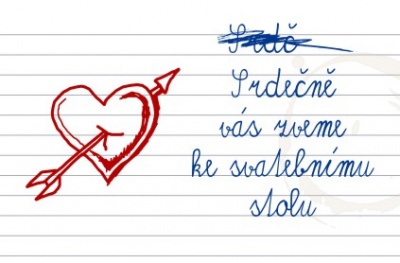 Srdč
Srdečně
vás zveme
ke svatebnímu
stolu